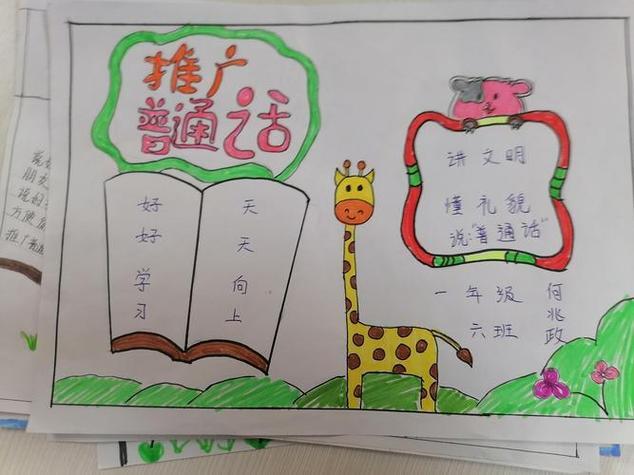 推广
普通话
好好学习
天天向上
讲文明
懂礼貌
说"普通话"
一年级
六班
何兆政
说好
方便
推广普